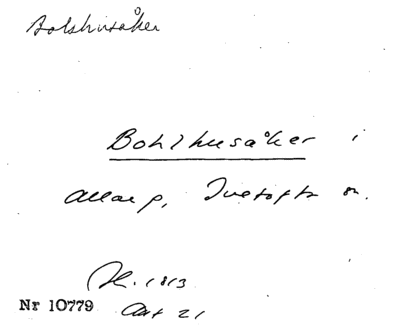 Bolshusåker
Bohlhusåker i
Allarp, Tvetofta sn.
Sk. 1813
Nr 10779 Akt 21